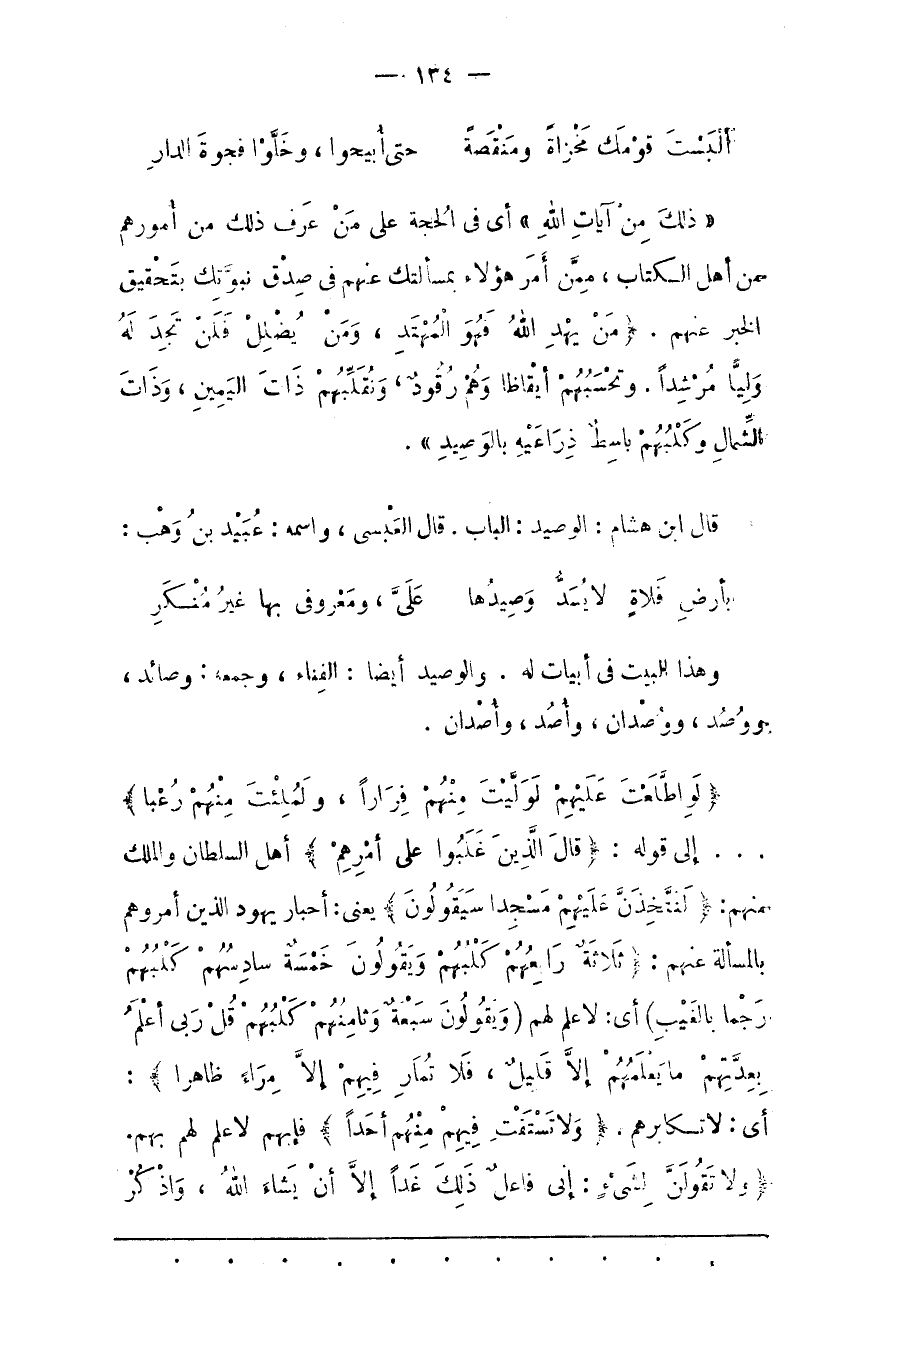 — ١٣٤ —
أَلْبَسْتَ قوْمَك مَخْزاةً ومَنْقَصةً حتى أُبيحوا ، وخَلَّوْا فجوةَ الدارِ
« ذلكَ مِنْ آيَاتِ اللهِ » أى فى الحجة على مَنْ عَرَف ذلك من أمورهم
من أهل الكتاب ، ممِنَّ أَمَرَ هؤلاء بمسألتك عنهم فى صِدْق نبوَّتك بتَحْقيق
الخبر عنهم . ﴿ مَنْ يهْدِ اللهُ فَهُوَ الْمُهْتَدِ ، وَمَنْ يُضْلِلْ فَلَنْ تَجِدَ لَهُ
وَلِيًّا مُرْشِداً . وتَحْسَبُهُمْ أيْقاظا وَهُمْ رُقُودٌ ، وَنُقَلِّبُهُمْ ذَاتَ اليَمِينِ ، وَذَاتَ
الشِّمالِ وكَلْبُهُمْ باسِطٌ ذِرَاعَيْهِ بالوَصِيدِ » .
قال ابن هشام : الوصيد : الباب . قال العَبْسى ، واسمه : عُبَيْد بنُ وَهْب :
بأرضِ فَلاةٍ لا يُسَدُّ وَصِيدُها عَلَىَّ ، ومَعْروفى بها غيرُ مُنْكَرِ
وهذا البيت فى أبيات له . والوصيد أيضا : الفِناء ، وجمعه : وصائد ،
ووُصُد ، ووُصْدان ، وأُصُد ، وأُصْدان .
﴿ لَوِ اطَّلَعْتَ عَلَيْهِمْ لَوَلَّيْتَ مِنْهُمْ فِرَاراً ، ولَمُلِئْتَ مِنْهُمْ رُعْبا ﴾
. . . إلى قوله : ﴿ قالَ الَّذِينَ غَلَبُوا على أمْرِهِمْ ﴾ أهل السلطان والملك
منهم: ﴿ لَنَتَّخِذَنَّ عَلَيْهِمْ مَسْجِدا سَيَقُولُونَ ﴾ يعنى: أحبار يهود الذين أمروهم
بالمسألة عنهم : ﴿ ثَلَاثَةٌ رَابِعُهُمْ كَلْبُهُمْ وَيَقُولُونَ خَمْسَةٌ سادِسُهُمْ كَلْبُهُمْ
رَجْما بالغَيْبِ) أى: لا علم لهم (وَيَقُولُونَ سَبْعَةٌ وَثامِنُهُمْ كَلْبُهُمْ قُلْ رَبى أعْلَمُ
بِعِدَّتِهِمْ ما يَعْلَمُهُمْ إلاَّ قَلِيلٌ ، فَلَا تُمَارِ فِيهِمْ إلاَّ مِرَاءً ظاهرا ﴾ :
أى : لا تكابرهم . ﴿ وَلا تَسْتَفْتِ فِيهِمْ مِنْهُم أحَداً ﴾ فإنهم لا علم لهم بهم.
﴿ ولا تَقُولَنَّ لِشَىْءٍ : إنى فاعلٌ ذَلِكَ غَداً إلاَّ أنْ يَشاءَ اللهُ ، وَاذْكُرْ
. . . . . . . . . . .